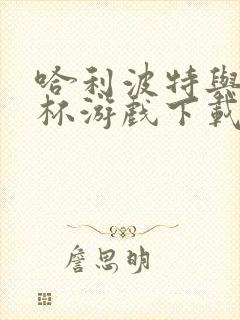 哈利波特與
杯游戲下載
詹思明